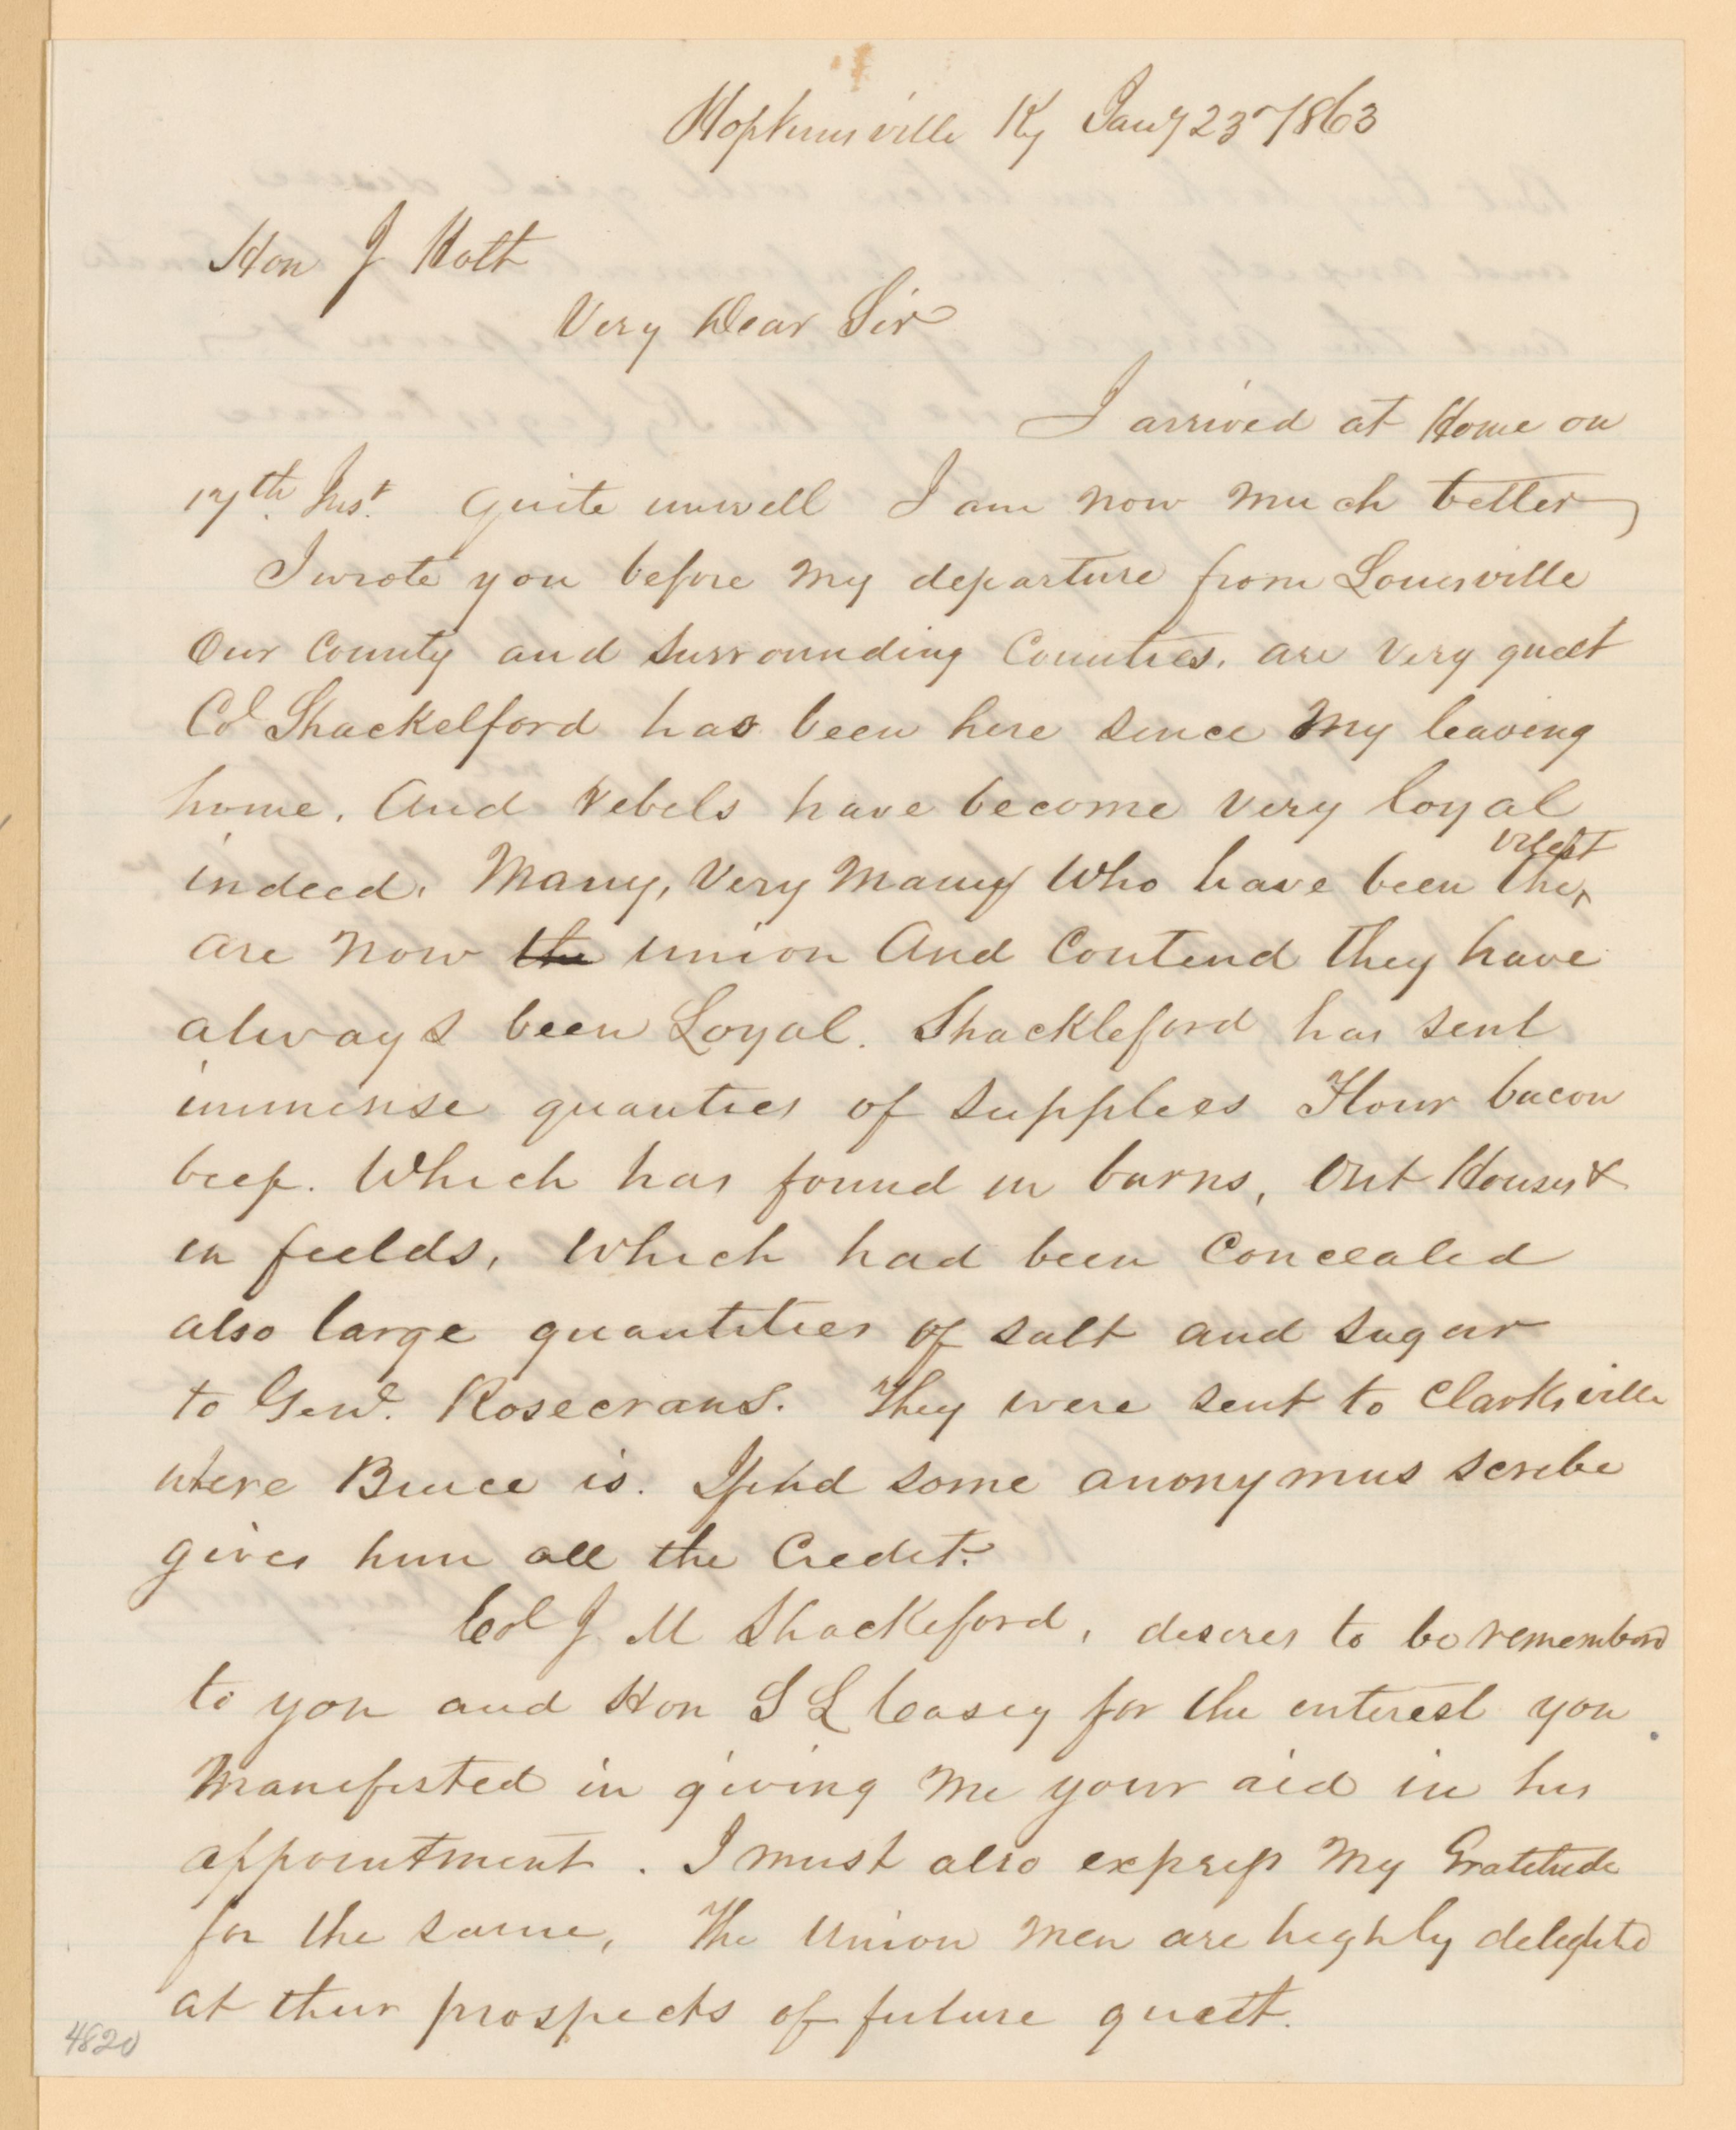 Hopkinsville Ky Jany 23d 1863
Hon J Holt
Very Dear Sir
I arrived at Home on
17th Inst. quite unwell I am now much better
I wrote you before my departure from Louisville
Our County and surrounding Counties. are very quiet
Col Shackelford has been here since my leaving
home. And Rebels have become very loyal
indeed. Many, very many who have been the
are now the union And Contend they have
always been Loyal. Shackleford has sent
immense quanties of supplies Flour bacon
beef. Which has found in barns, Out Houses &
in fields, which had been Concealed
also large quantities of salt and sugar
to Genl. Rosecrans. They were sent to Clarksville
where Bruce is. I find some anonymus scribe
gives him all the Credit.
Col J M Shackleford, desires to be remembered
to you and Hon S L Casey for the interest you
manifested in giving me your aid in his
appointment. I must also express my Gratitude
for the same, The Union men are highly delighted
at their prospects of future quiet.
4820